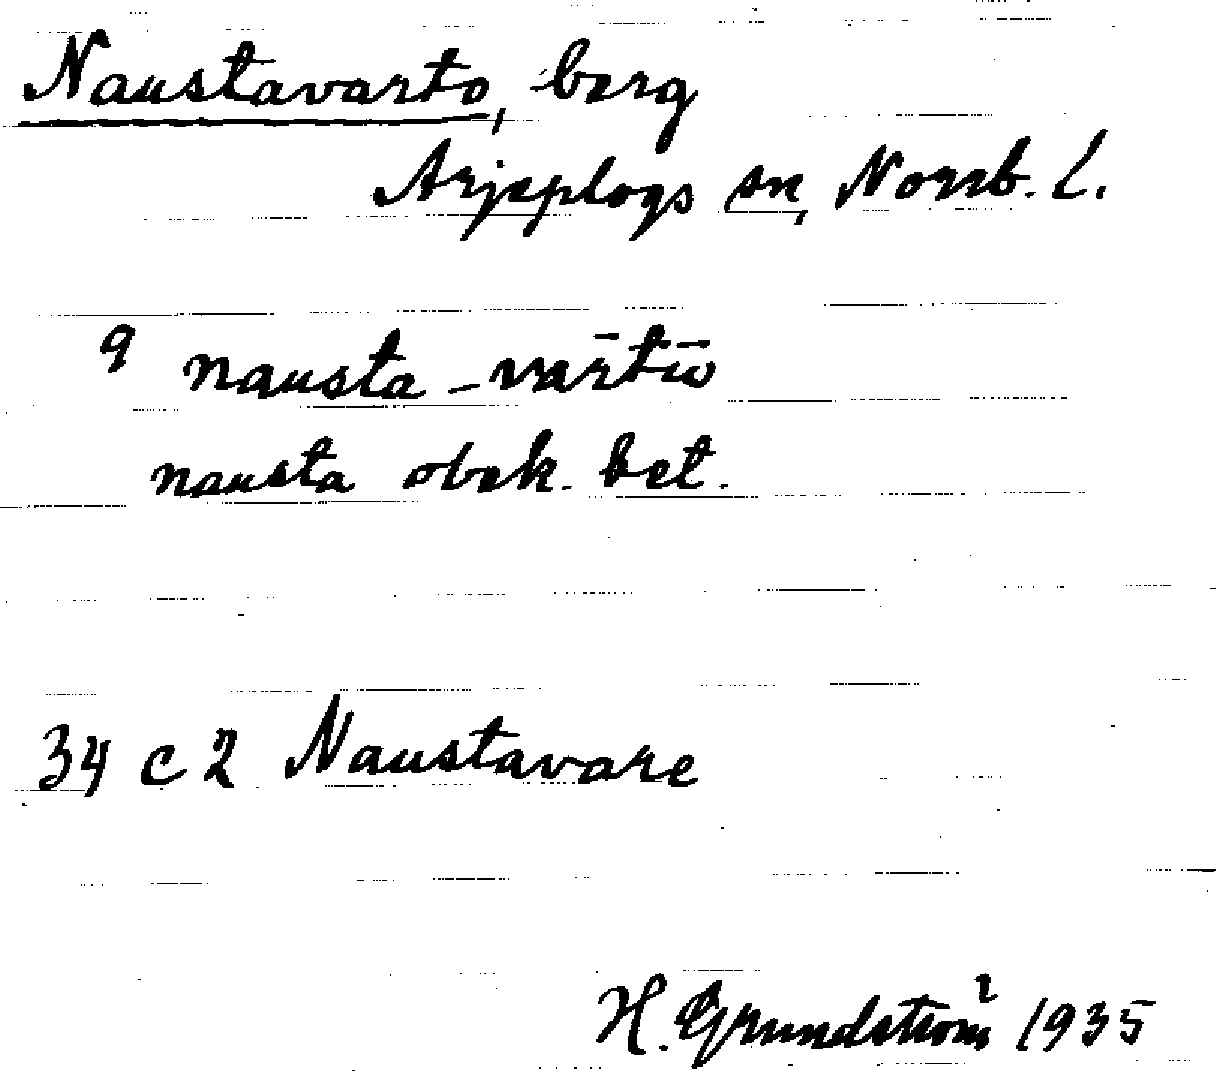 Naustavarto, berg
Arjeplogs sn, Norrb. L.
9 nausta-vārtū̄o
nausta obek. bet.
34 c 2 Naustavare
H. Grundström 1935